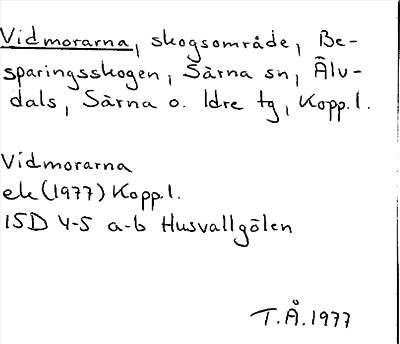 Vidmorarna, skogsområde, Be-
sparingsskogen, Särna sn, Älv-
dals, Särna o. Idre tg, Kopp.l.
Vidmorarna
ek (1977) Kopp.l.
15D 4-5 a-b Husvallgölen
T.Å.1977